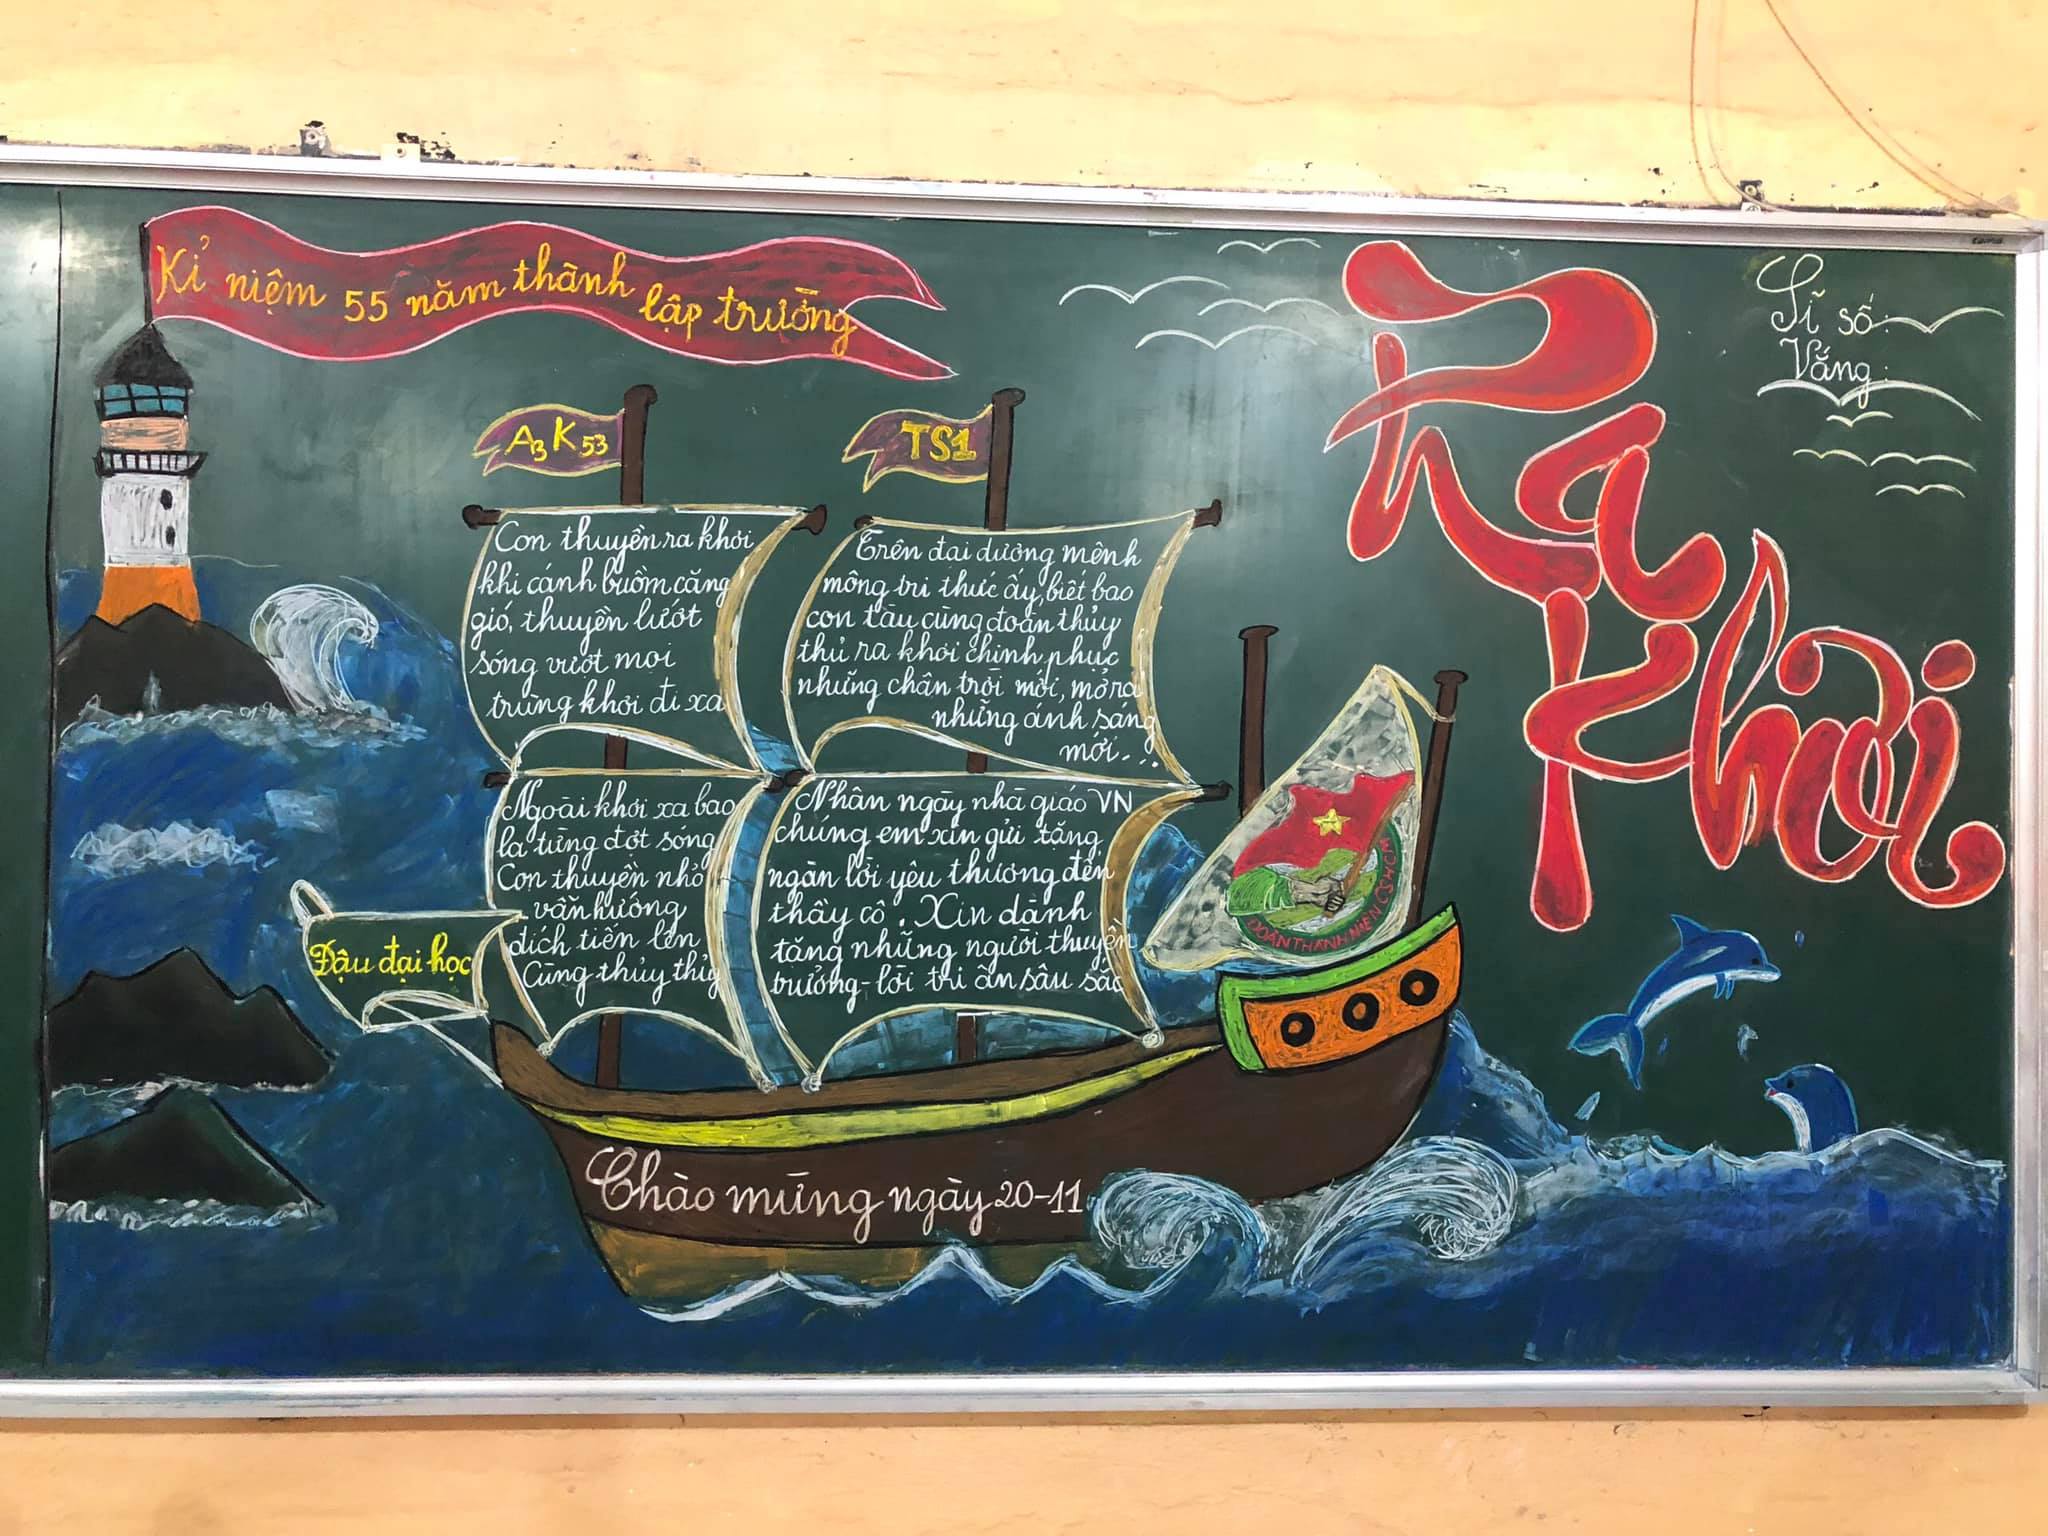 Kỉ niệm 55 năm thành lập trường
Ra
Khơi
Sĩ số:
Vắng:
A3 K53
TS1
Con thuyền ra khơi
khi cánh buồm căng
gió, thuyền lướt
sóng vượt mọi
trùng khơi đi xa
Trên đại dương mênh
mông tri thức ấy, biết bao
con tàu cùng đoàn thủy
thủ ra khơi chinh phục
những chân trời mới, mở ra
những ánh sáng
mới...
Ngoài khơi xa bao
la từng đợt sóng
Con thuyền nhỏ
vẫn hướng
đích tiến lên
Cùng thủy thủ
Nhân ngày nhà giáo VN
chúng em xin gửi tặng
ngàn lời yêu thương đến
thầy cô. Xin dành
tặng những người thuyền
trưởng - lời tri ân sâu sắc
Đậu đại học
ĐOÀN THANH NIÊN CS HCM
Chào mừng ngày 20-11